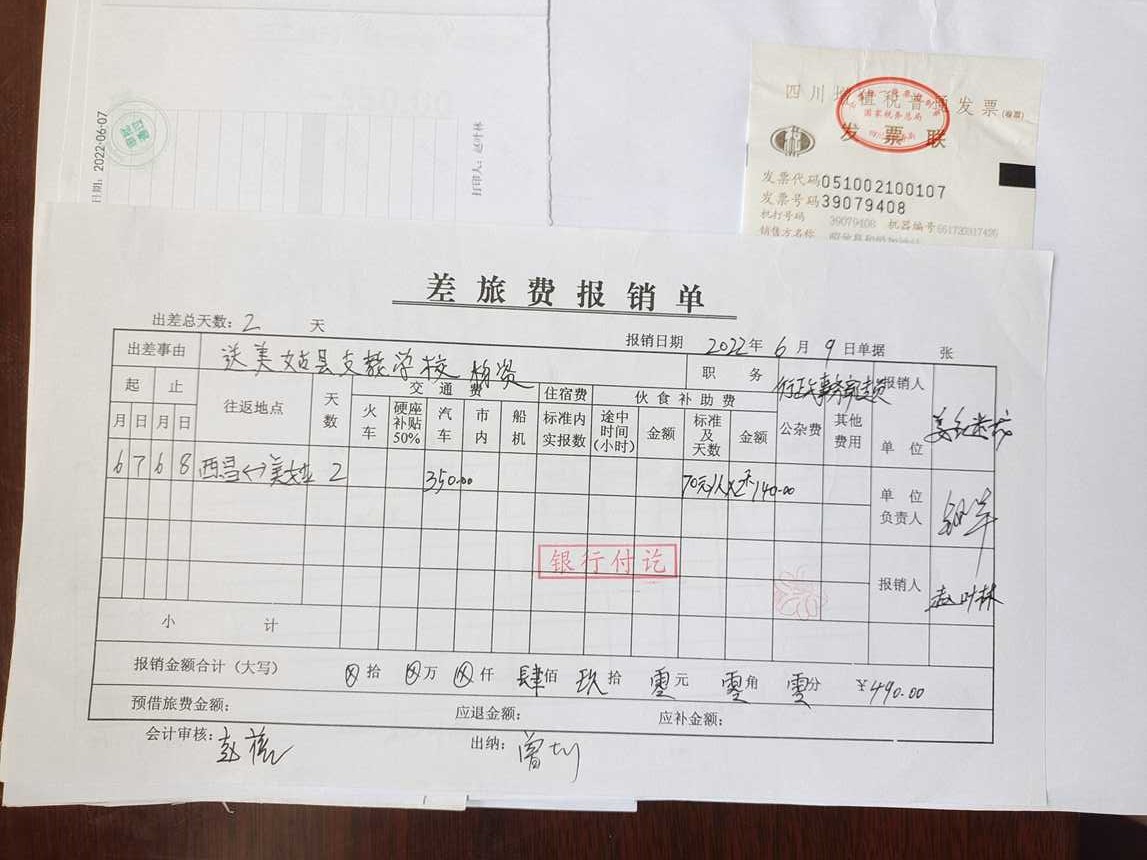 日期: 2022-06-07
打印人: 赵叶林
四川增值税普通发票(卷票)
国家税务总局
发票联
发票代码051002100107
发票号码39079408
机打号码 39079408 机器编号
销售方名称
差旅费报销单
出差总天数: 2 天
报销日期 2022年 6月 9日 单据 张
出差事由 送美姑县支教学校物资 职务 报销人
起 止 往返地点 天数 交通费 住宿费 伙食补助费 公杂费 其他费用 单位
月 日 月 日 火车 硬座补贴50% 汽车 市内 船机 标准内实报数 途中时间(小时) 金额 标准及天数 金额
6 7 6 8 西昌<->美姑 2 350.00 70元/人×2天 140.00
单位负责人
银行付讫
报销人 赵叶林
小计
报销金额合计(大写) ⊗拾 ⊗万 ⊗仟 肆佰 玖拾 零元 零角 零分 ¥490.00
预借旅费金额: 应退金额: 应补金额:
会计审核: 出纳: